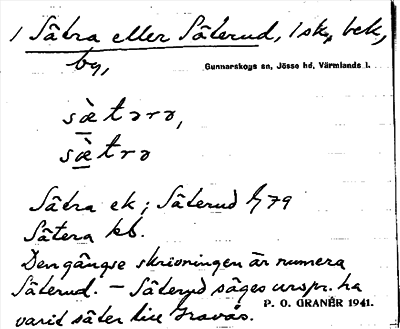 1 Sätra eller Säterud, 1 sk, bek,
by,
Gunnarskogs sn, Jösse hd, Värmlands l.
sæ̀tərə,
sæ̀trə
Sätra ek; Säterud J 79
Sätera kb.
Den gängse skrivningen är numera
Säterud. – Säteryd säges urspr. ha
varit säter till Gravås.
P. O. GRANÉR 1941.